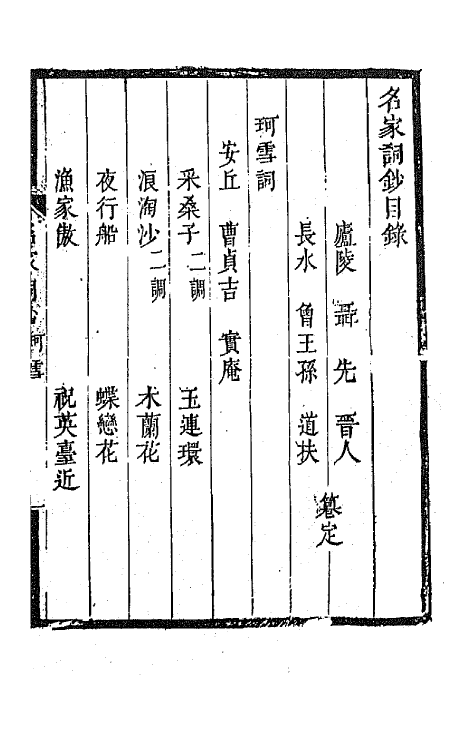 名家詞鈔目錄
廬陵　聶　先　晉人
長水　曾王孫　道扶
篹定
珂雪詞
安丘　曹貞吉　實庵
采桑子二調　玉連環
浪淘沙二調　木蘭花
夜行船　蝶戀花
漁家傲　祝英臺近